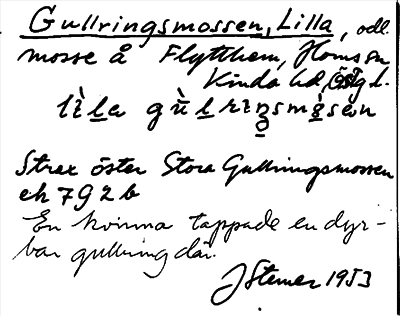 Gullringsmossen, Lilla, odl.
mosse å Flytthem, Horns sn
Kinda hd, Östg l.
Strax öster Stora Gullringsmossen
ek 7 9 2 b
En kvinna tappade en dyr-
bar gullring där.
J Stemer 1953